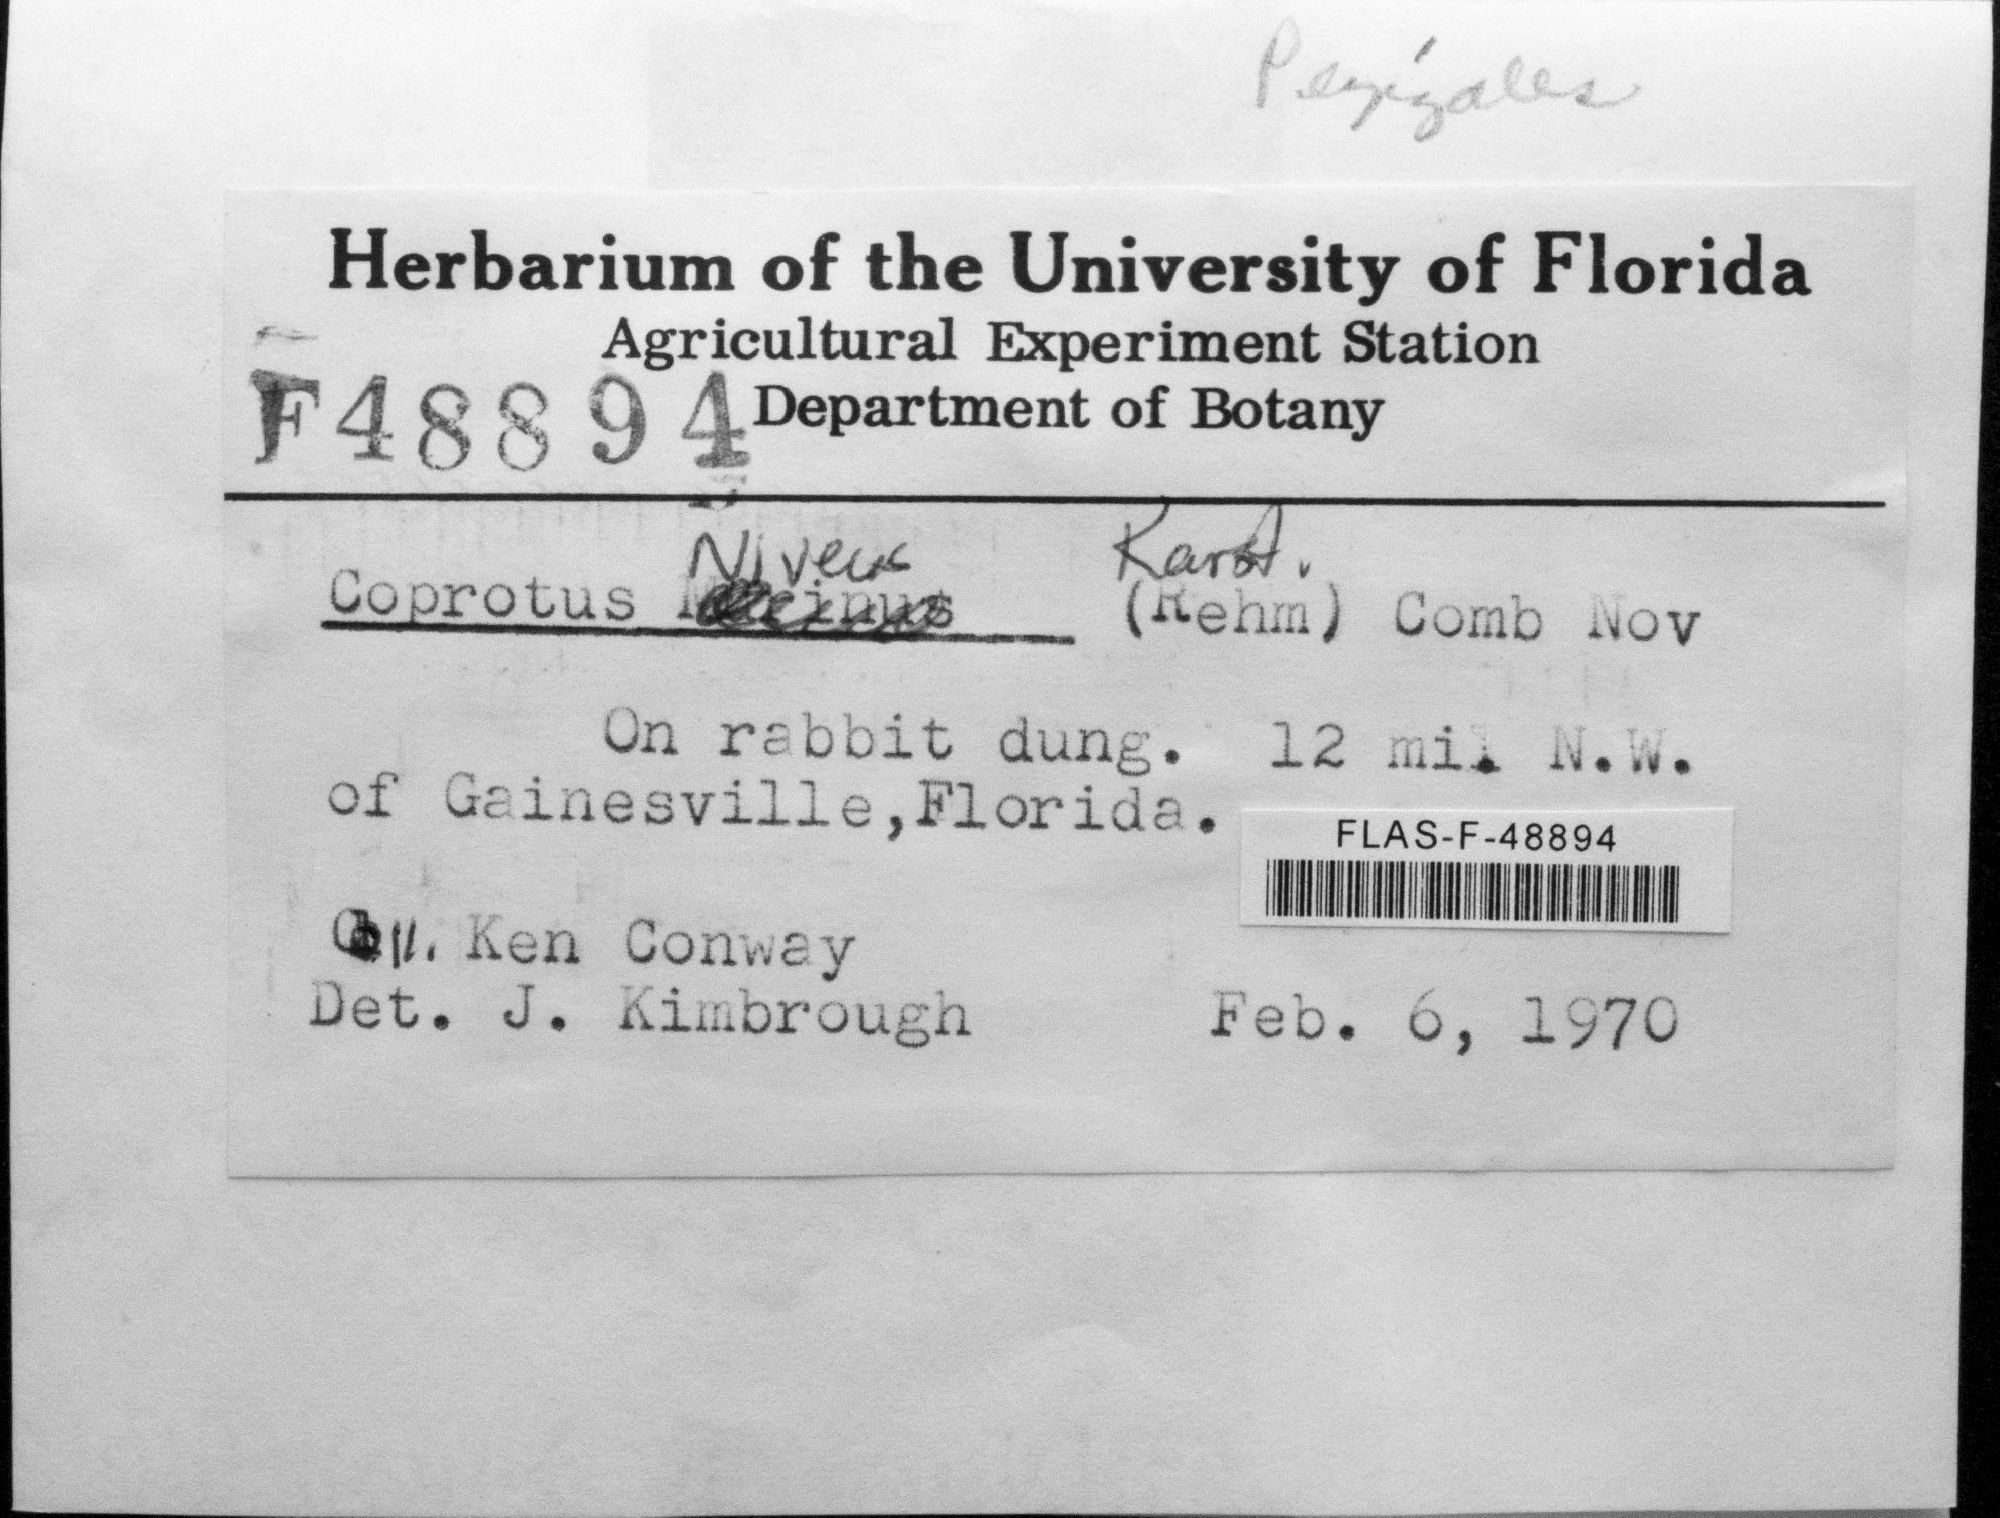 Pezizales
Herbarium of the University of Florida
Agricultural Experiment Station
F48894 Department of Botany
Niveus Karst.
Coprotus (Rehm) Comb Nov
On rabbit dung. 12 mi. N.W.
of Gainesville,Florida.
FLAS-F-48894
Coll. Ken Conway
Det. J. Kimbrough Feb. 6, 1970